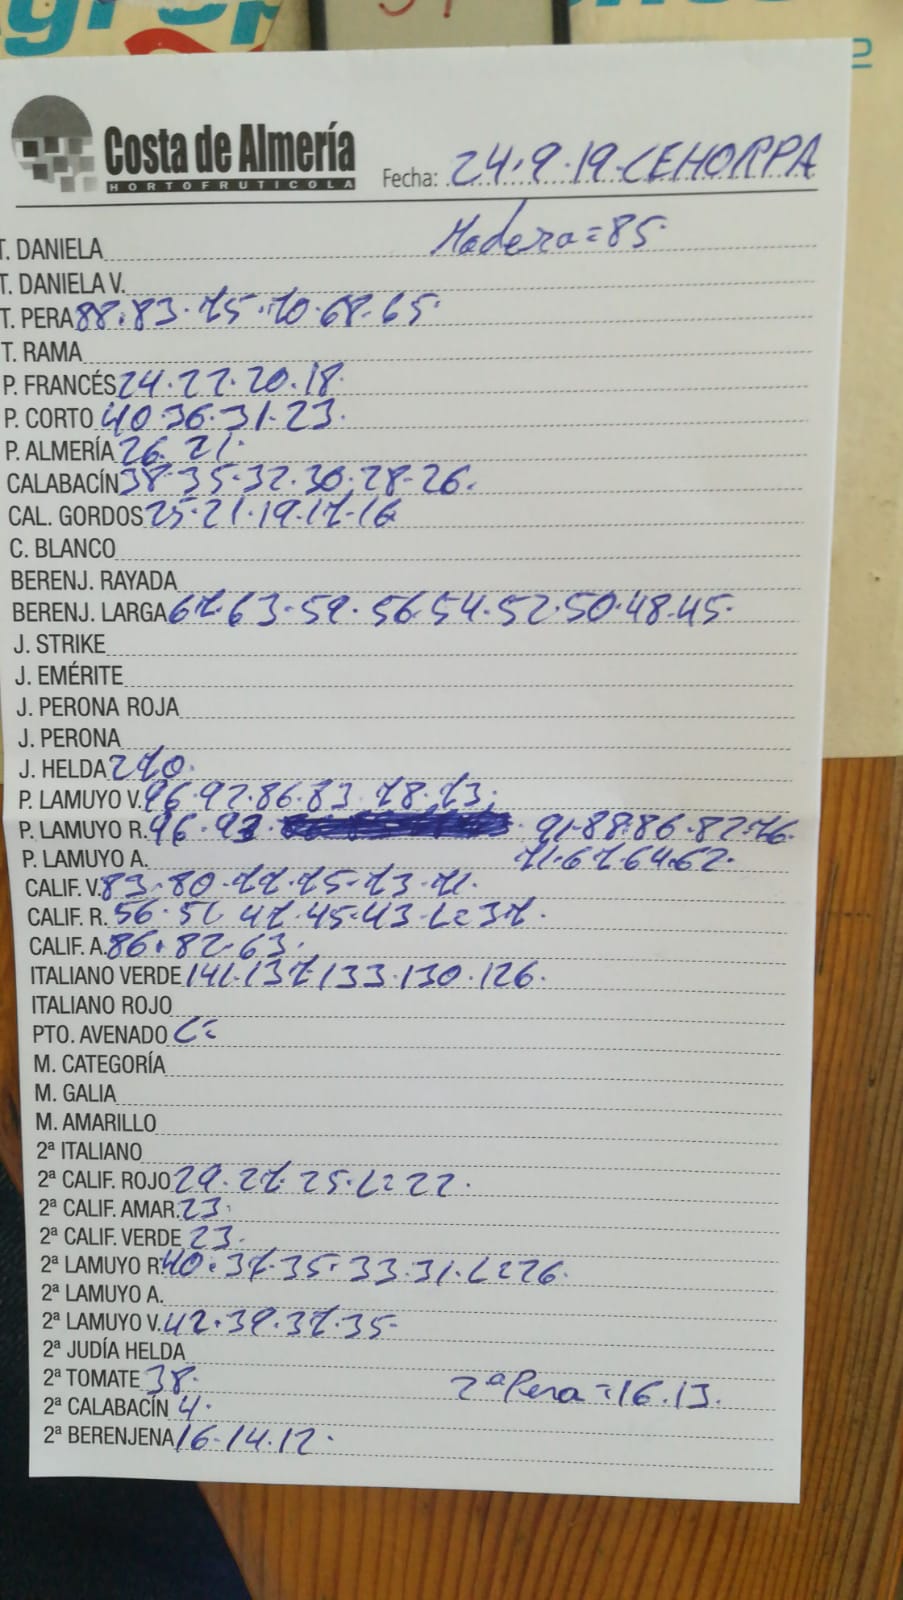 Costa de Almería
HORTOFRUTICOLA
Fecha: 24.9.19-CEHORPA
Madera=85.
T. DANIELA
T. DANIELA V.
T. PERA 88.83.75.70.68.65.
T. RAMA
P. FRANCÉS 24.22.20.18.
P. CORTO 40.36.31.23.
P. ALMERÍA 26.21.
CALABACÍN 38.35.32.30.28.26.
CAL. GORDOS 25.21.19.17.16
C. BLANCO
BERENJ. RAYADA
BERENJ. LARGA 67.63.59.56.54.52.50.48.45.
J. STRIKE
J. EMÉRITE
J. PERONA ROJA
J. PERONA
J. HELDA 270.
P. LAMUYO V. 96.92.86.83.78.73.
P. LAMUYO R. 96.93. 91.88.86.82.76.
71.67.64.62.
P. LAMUYO A.
CALIF. V. 83.80.77.75.73.71.
CALIF. R. 56.51.47.45.43.L=37.
CALIF. A. 86.82.63.
ITALIANO VERDE 141.137.133.130.126.
ITALIANO ROJO
PTO. AVENADO L=
M. CATEGORÍA
M. GALIA
M. AMARILLO
2ª ITALIANO
2ª CALIF. ROJO 29.27.25.L=22.
2ª CALIF. AMAR. 23.
2ª CALIF. VERDE 23.
2ª LAMUYO R. 40.37.35.33.31.L=26.
2ª LAMUYO A.
2ª LAMUYO V. 42.39.37.35.
2ª JUDÍA HELDA
2ª TOMATE 38.
2ª Pera=16.13.
2ª CALABACÍN 4.
2ª BERENJENA 16.14.12.